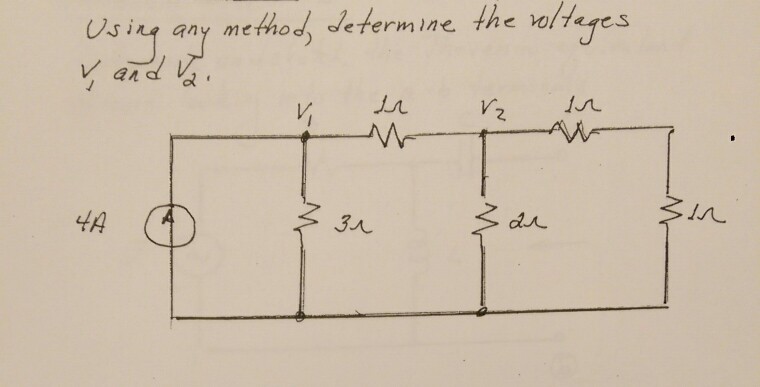 Using any method, determine the voltages
V₁ and V₂.
V₁ 1Ω V₂ 1Ω
4A 3Ω 2Ω 1Ω